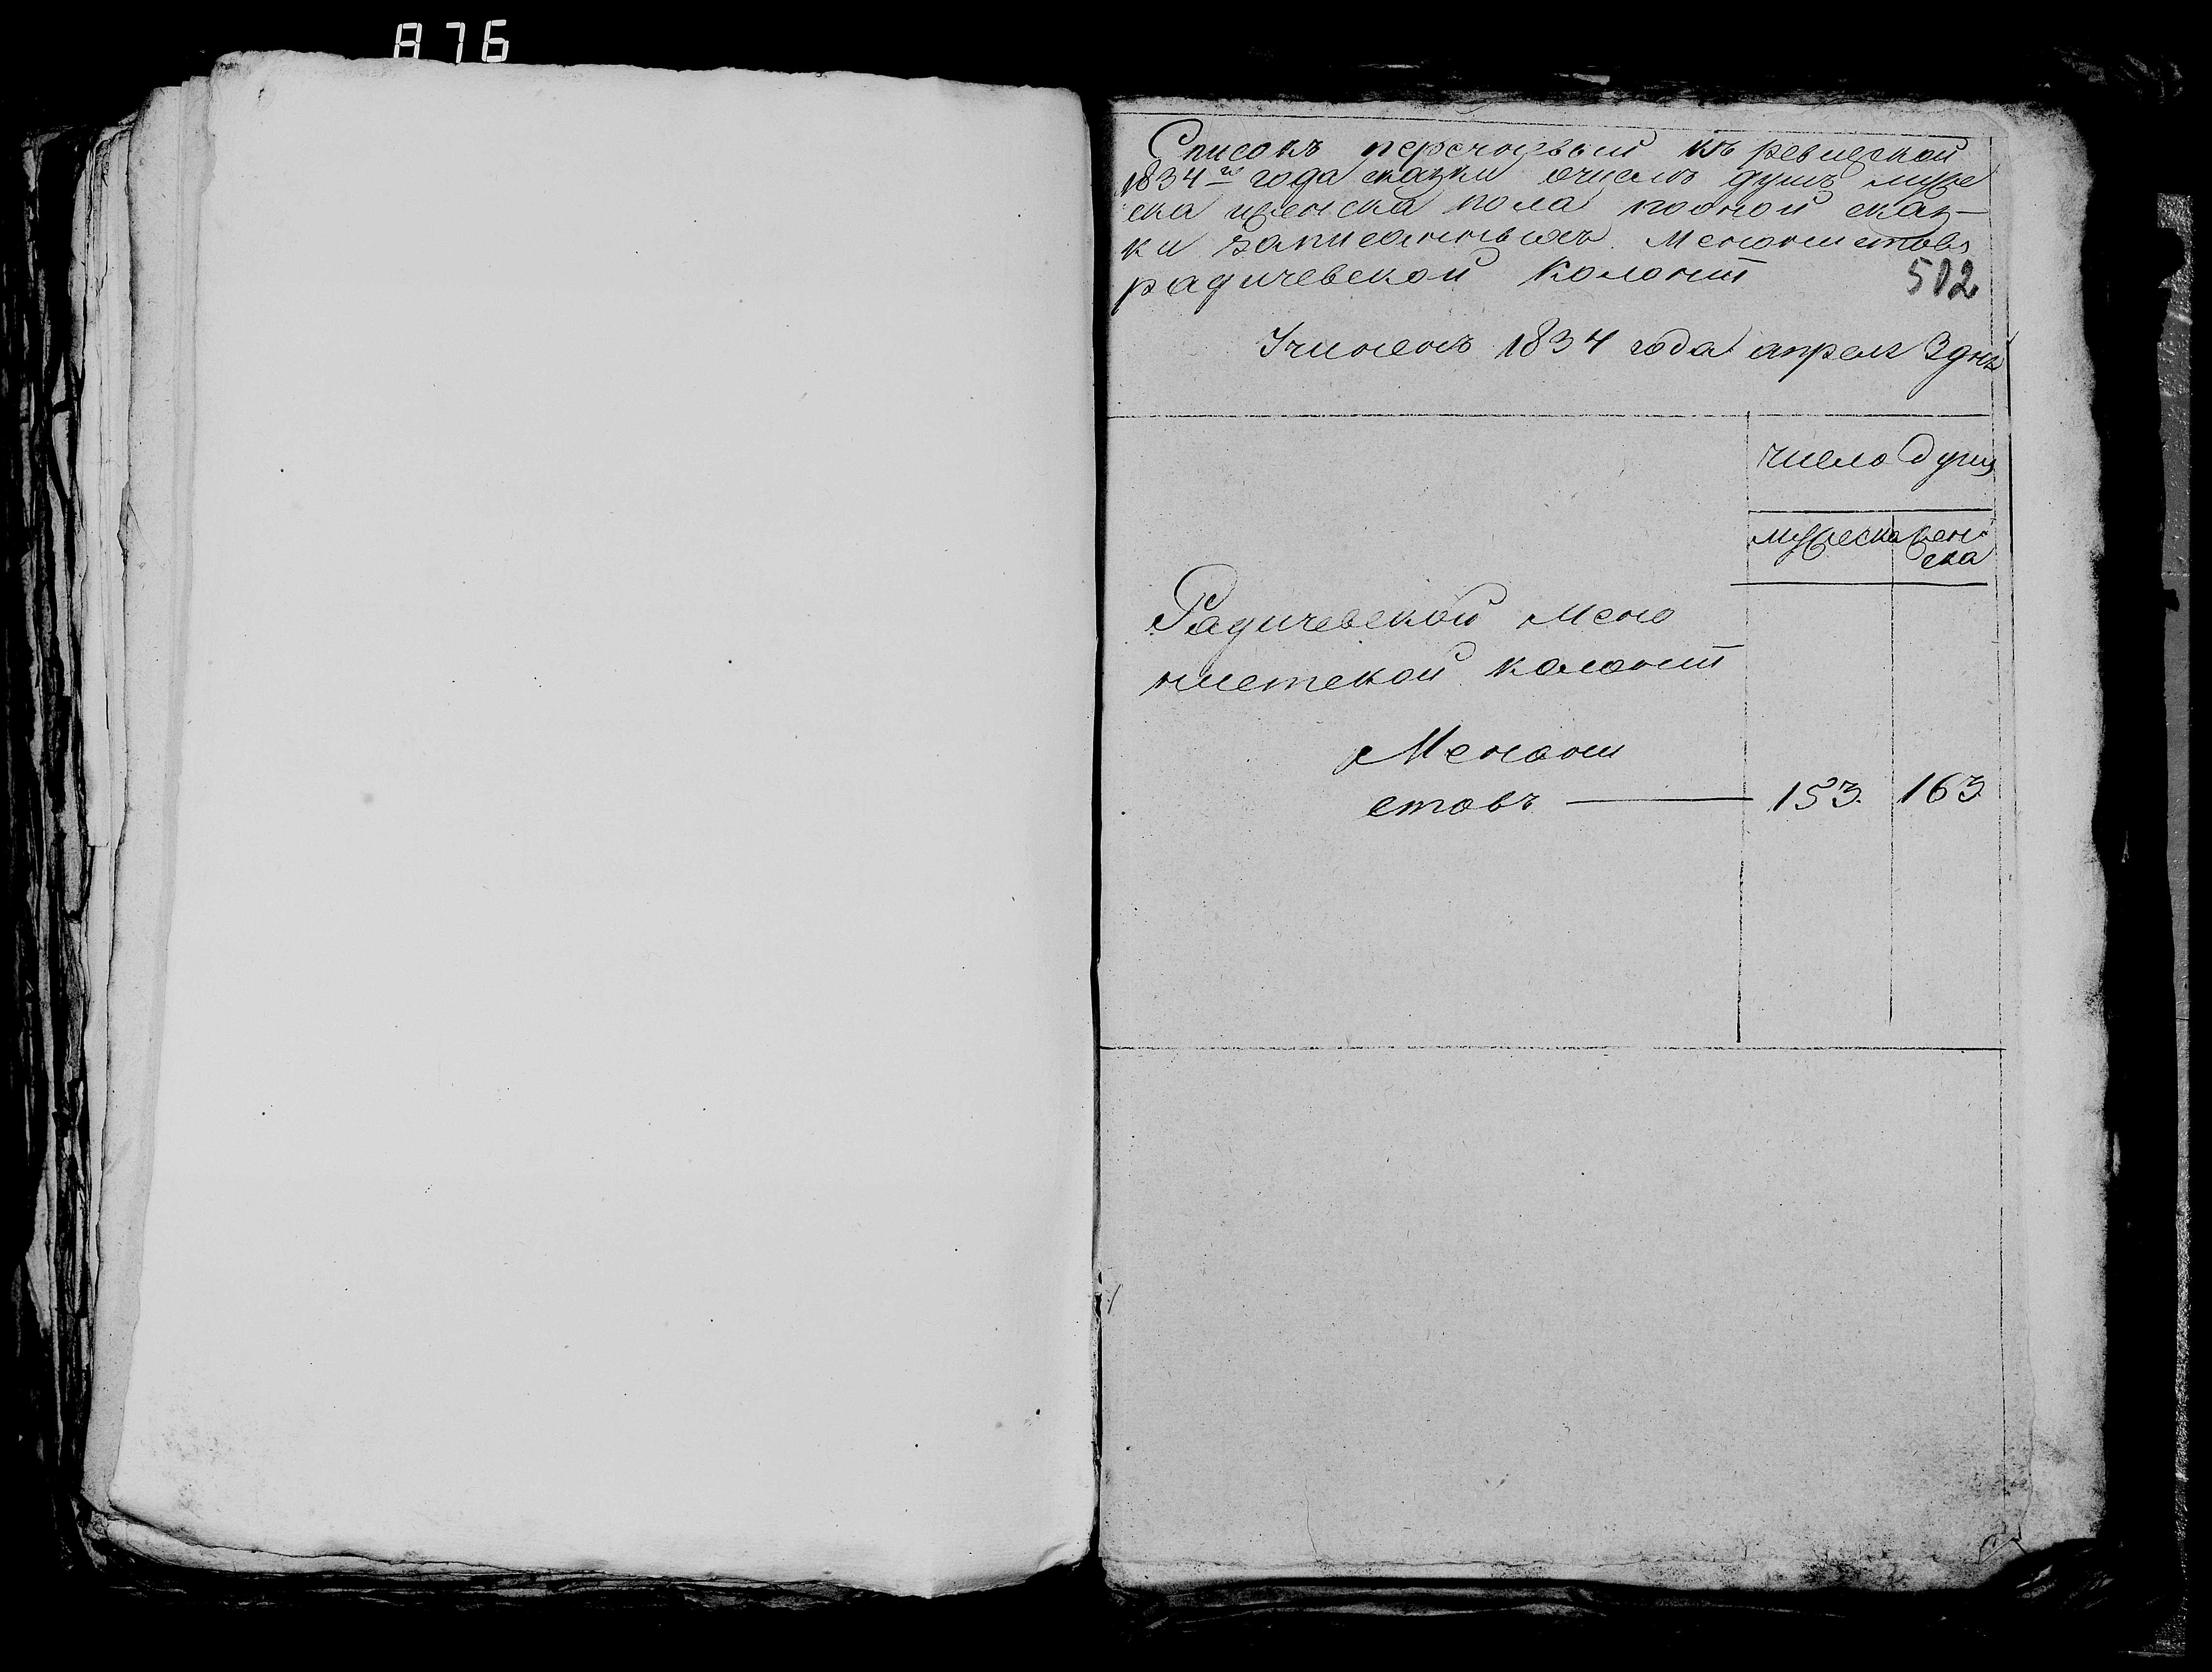 876
Списокъ перечневый къ ревизской
1834го года сказки очислѣ душъ муже
ска иженска пола поодной сказ-
ки записанныхъ Менонистовъ
радичевской колонiи
502
Учиненъ 1834 года апреля 3 дня
число душъ
мужеска жен-
ска
Радичевской Мено
нистской колонiи
Менони
стовъ — 153. 163